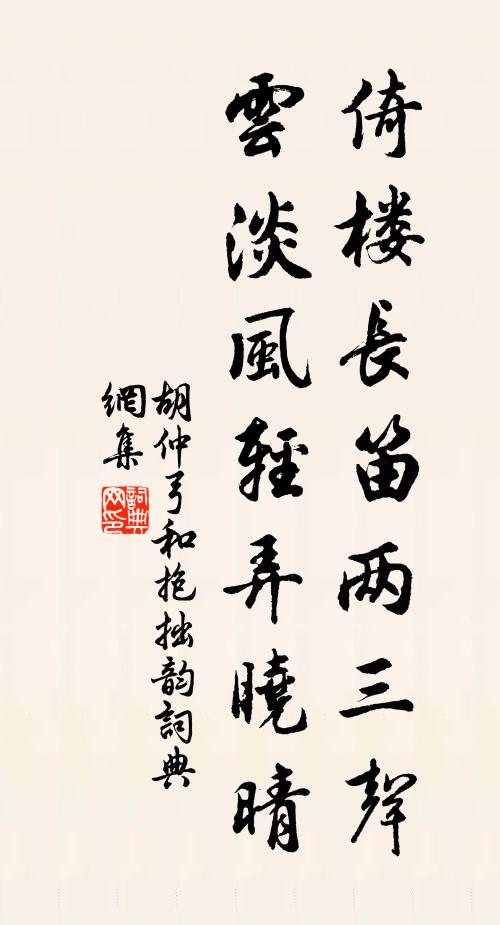 倚楼長笛两三聲
雲淡風輕弄曉晴
胡仲弓和抱拙韵詞典
網集
詞典网印